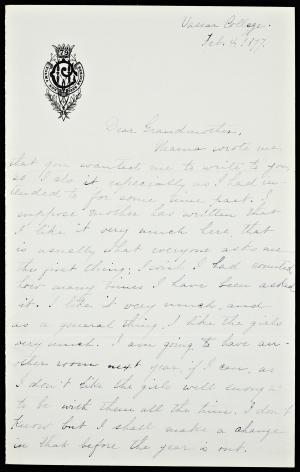 Vassar College.
Feb. 4, 1877.
Dear Grandmother,
Mama wrote me
that you wanted me to write to you
so I do it especially as I had in-
tended to for some time past. I
suppose Mother has written that
I like it very much here, that
is usually what everyone asks me
the first thing; I wish I had counted
how many times I have been asked
it. I like it very much, and
as a general thing, I like the girls
very much. I am going to have an-
other room next year, if I can, as
I don't like the girls well enough
to be with them all the time. I don't
know but I shall make a change
in that before the year is out.